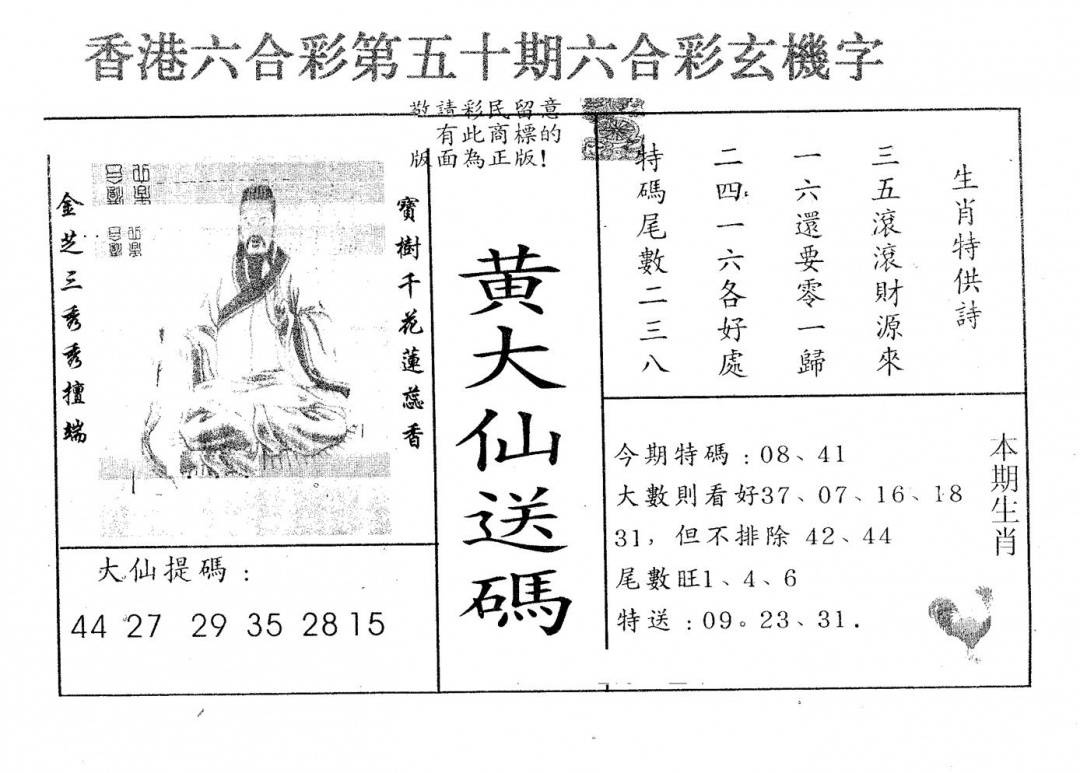 香港六合彩第五十期六合彩玄機字
敬請彩民留意
有此商標的
版面為正版!
寶樹千花蓮蕊香
金芝三秀秀擅端
大仙提碼：
44 27 29 35 28 15
黃大仙送碼
生肖特供詩
三五滾滾財源來
一六還要零一歸
二四一六各好處
特碼尾數二三八
本期生肖
今期特碼：08、41
大數則看好37、07、16、18
31，但不排除 42、44
尾數旺1、4、6
特送：09。23、31.